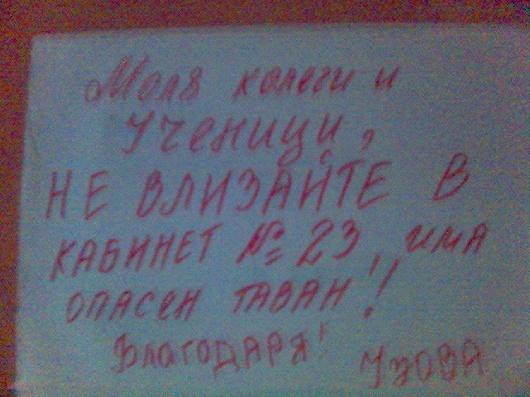 Моля колеги и
Ученици,
НЕ ВЛИЗАЙТЕ В
КАБИНЕТ № 23, ИМА
ОПАСЕН ТАВАН!
Благодаря! Узова